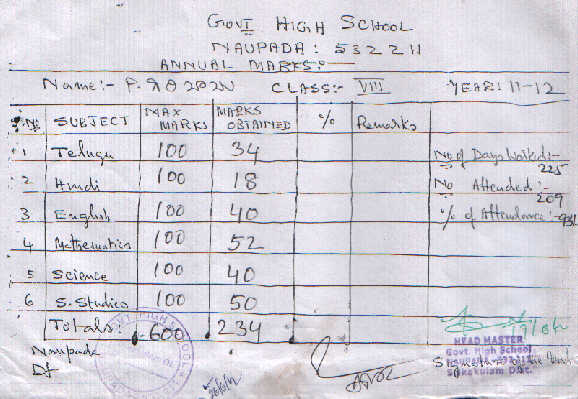 GOVT HIGH SCHOOL
NAUPADA: 532211
ANNUAL MARKS:-
Name:- P. CLASS:- VIII YEAR: 11-12
S.No SUBJECT MAX MARKS MARKS OBTAINED % Remarks
1 Telugu 100 34
2 Hindi 100 18
3 English 100 40
4 Mathematics 100 52
5 Science 100 40
6 S. Studies 100 50
Totals: 600 234
No of Days Worked:-
225
No Attended:-
209
% of Attendance:-
Naupada
HEAD MASTER
Govt. High School
Srikakulam Dist.